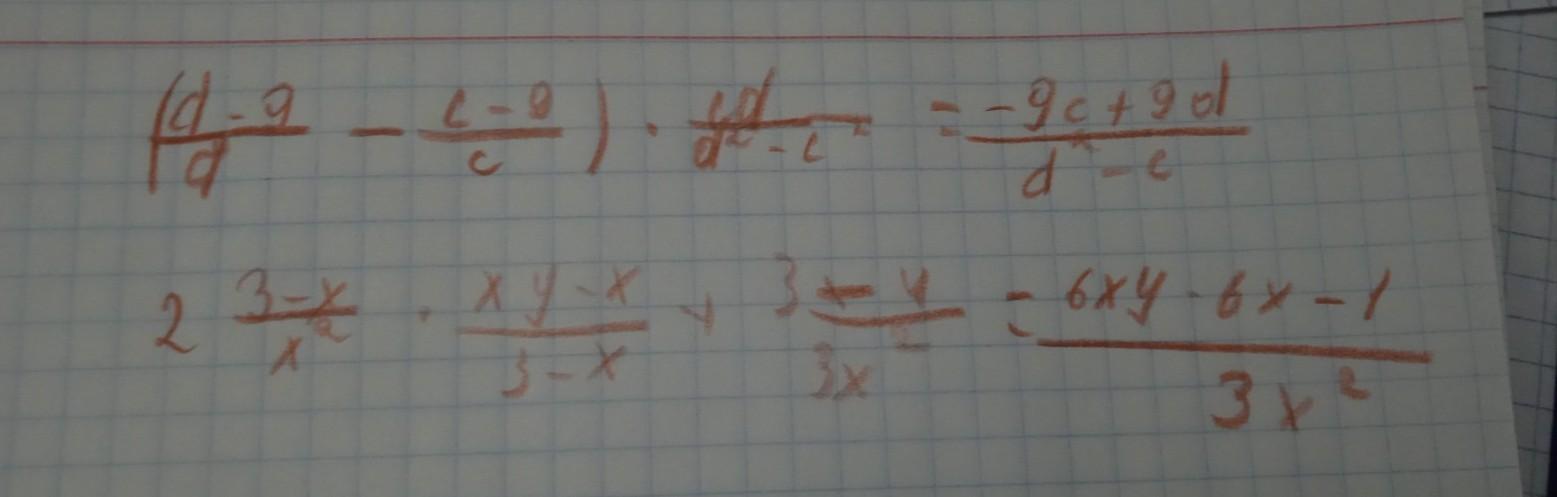 (d-9/d - c-9/c) · cd/d²-c² = -9c+9d/d²-c
2 3-x/x² · xy-x/3-x + 3-4/3x² = 6xy-6x-1/3x²